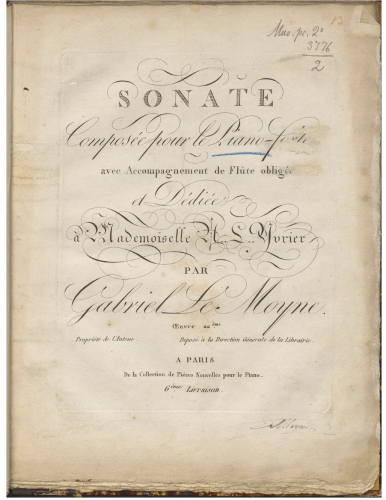 13
Mus. pr. 2º
3776
2
SONATE
Composée pour le Piano-forte
avec Accompagnement de Flûte obligée
et Dédiée
à Mademoiselle A. L. Yvrier
PAR
Gabriel Le Moyne.
Œuvre 22ème
Propriété de l'Auteur. Déposé à la Direction Générale de la Librairie.
A PARIS
De la Collection de Pièces Nouvelles pour le Piano.
6ème Livraison.